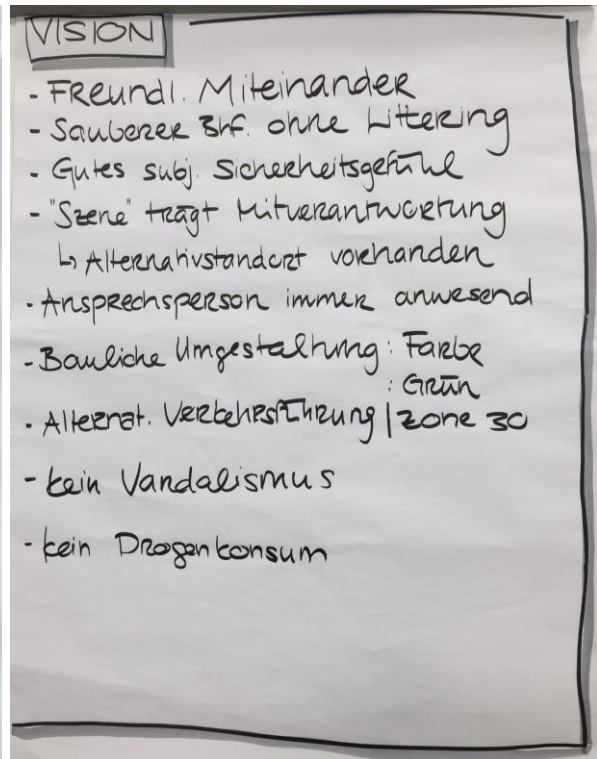 VISION
- Freundl. Miteinander
- Sauberer Bhf. ohne Littering
- Gutes subj. Sicherheitsgefühl
- "Szene" trägt Mitverantwortung
↳ Alternativstandort vorhanden
- Ansprechsperson immer anwesend
- Bauliche Umgestaltung: Farbe
: Grün
- Alternat. Verkehrsführung | Zone 30
- kein Vandalismus
- kein Drogenkonsum